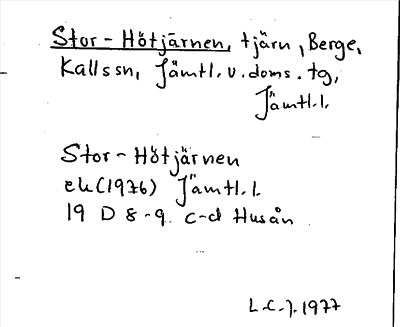 Stor-Hötjärnen, tjärn, Berge,
Kallssn, Jämtl.v.doms.tg,
Jämtl.l.
Stor-Hötjärnen
ek(1976) Jämtl.l.
19 D 8-9 c-d Husån
L.C.J. 1977